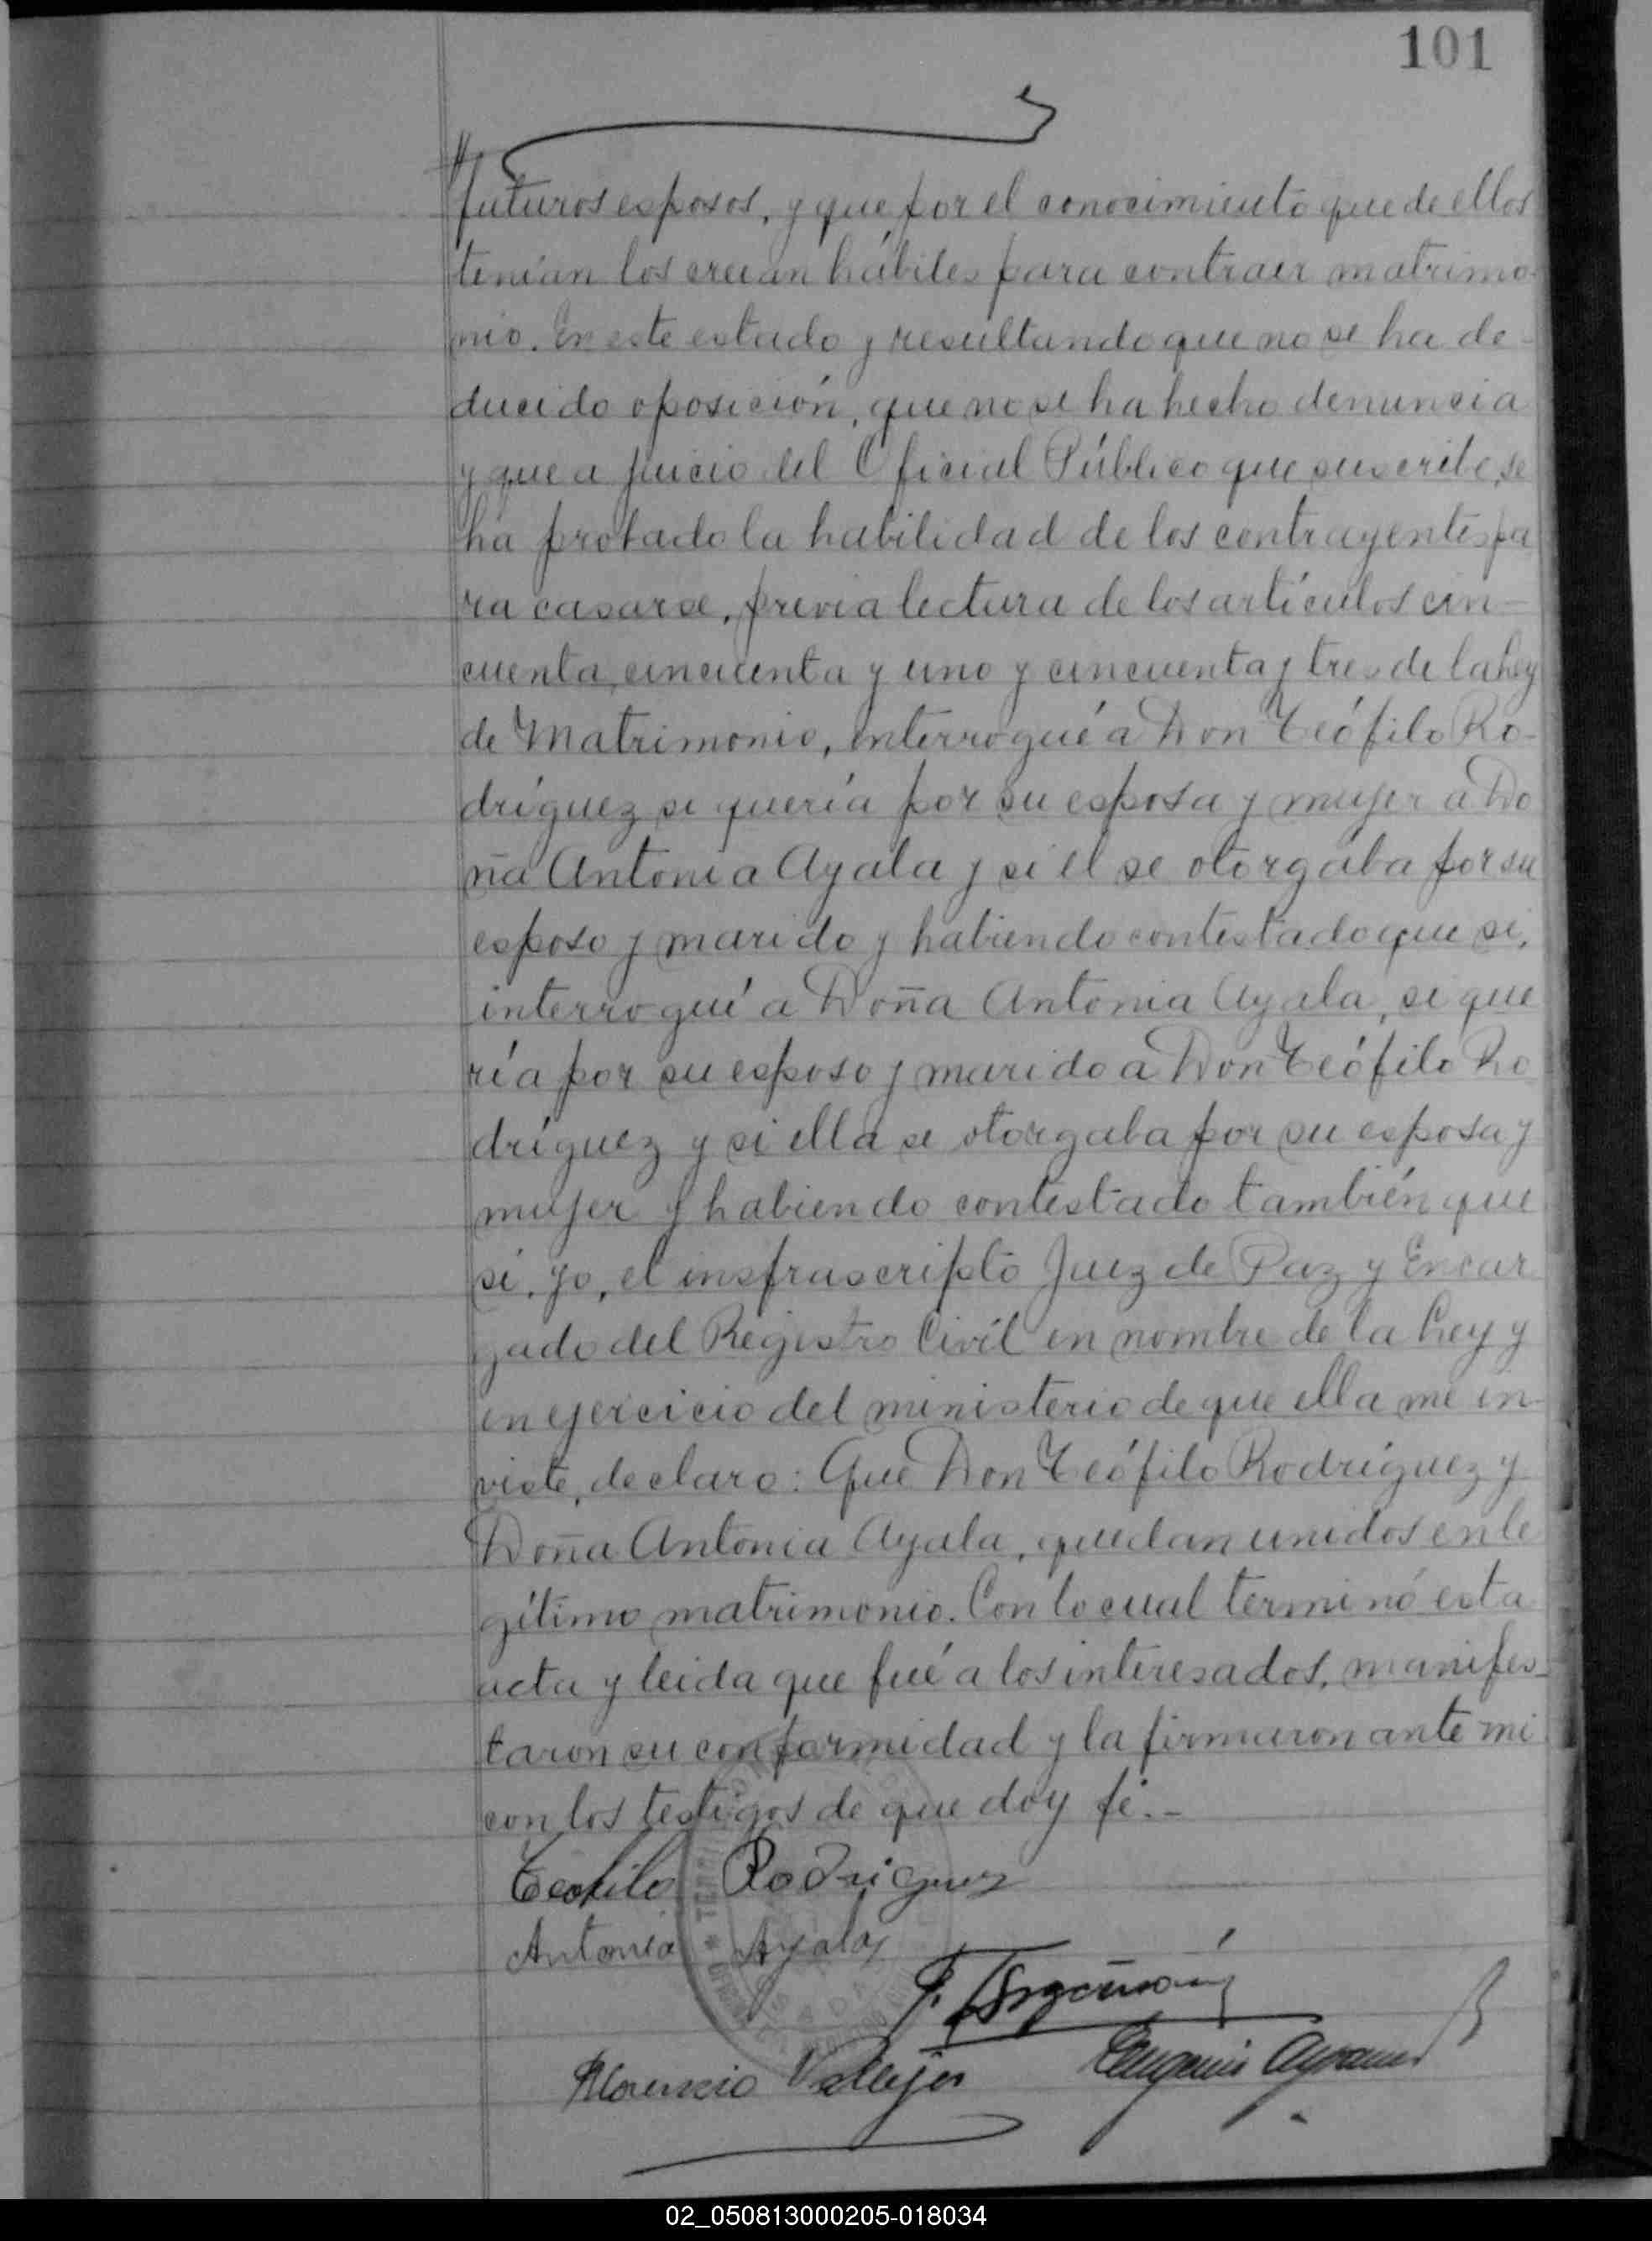 101
futuros esposos, y que, por el conocimiento que de ellos
tenían los creian hábiles para contraer matrimo-
nio. En este estado y resultando que no se ha de-
ducido oposición, que no se ha hecho denuncia
y que a juicio del Oficial Público que suscribe, se
ha probado la habilidad de los contrayentes pa
ra casarse, previa lectura de los artículos cin-
cuenta, cincuenta y uno y cincuenta y tres de la Ley
de Matrimonio, interrogué a Don Teófilo Ro-
dríguez si quería por su esposa y mujer a Do
ña Antonia Ayala y si el se otorgaba por su
esposo y marido y habiendo contestado que si,
interrogué a Doña Antonia Ayala, si que
ría por su esposo y marido a Don Teófilo Ro
dríguez y si ella se otorgaba por su esposa y
mujer y habiendo contestado también que
si, yo, el insfrascripto Juez de Paz y Encar
gado del Registro Civil en nombre de la Ley y
en ejercicio del ministerio de que ella me in-
viste, declaro: Que Don Teófilo Rodríguez y
Doña Antonia Ayala, quedan unidos en le
gítimo matrimonio. Con lo cual terminó esta
acta y leida que fué a los interesados, manifes-
taron su conformidad y la firmaron ante mi
con los testigos de que doy fé.-
Teofilo Rodriguez
Antonia Ayala
Florencio Vallejos
Eugenio
02_050813000205-018034